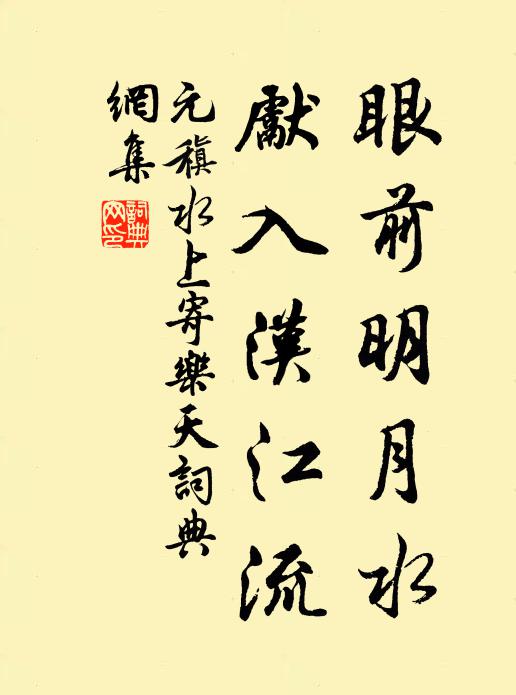 眼前明月水
獻入漢江流
元稹水上寄樂天詞典
網集
詞典
网印